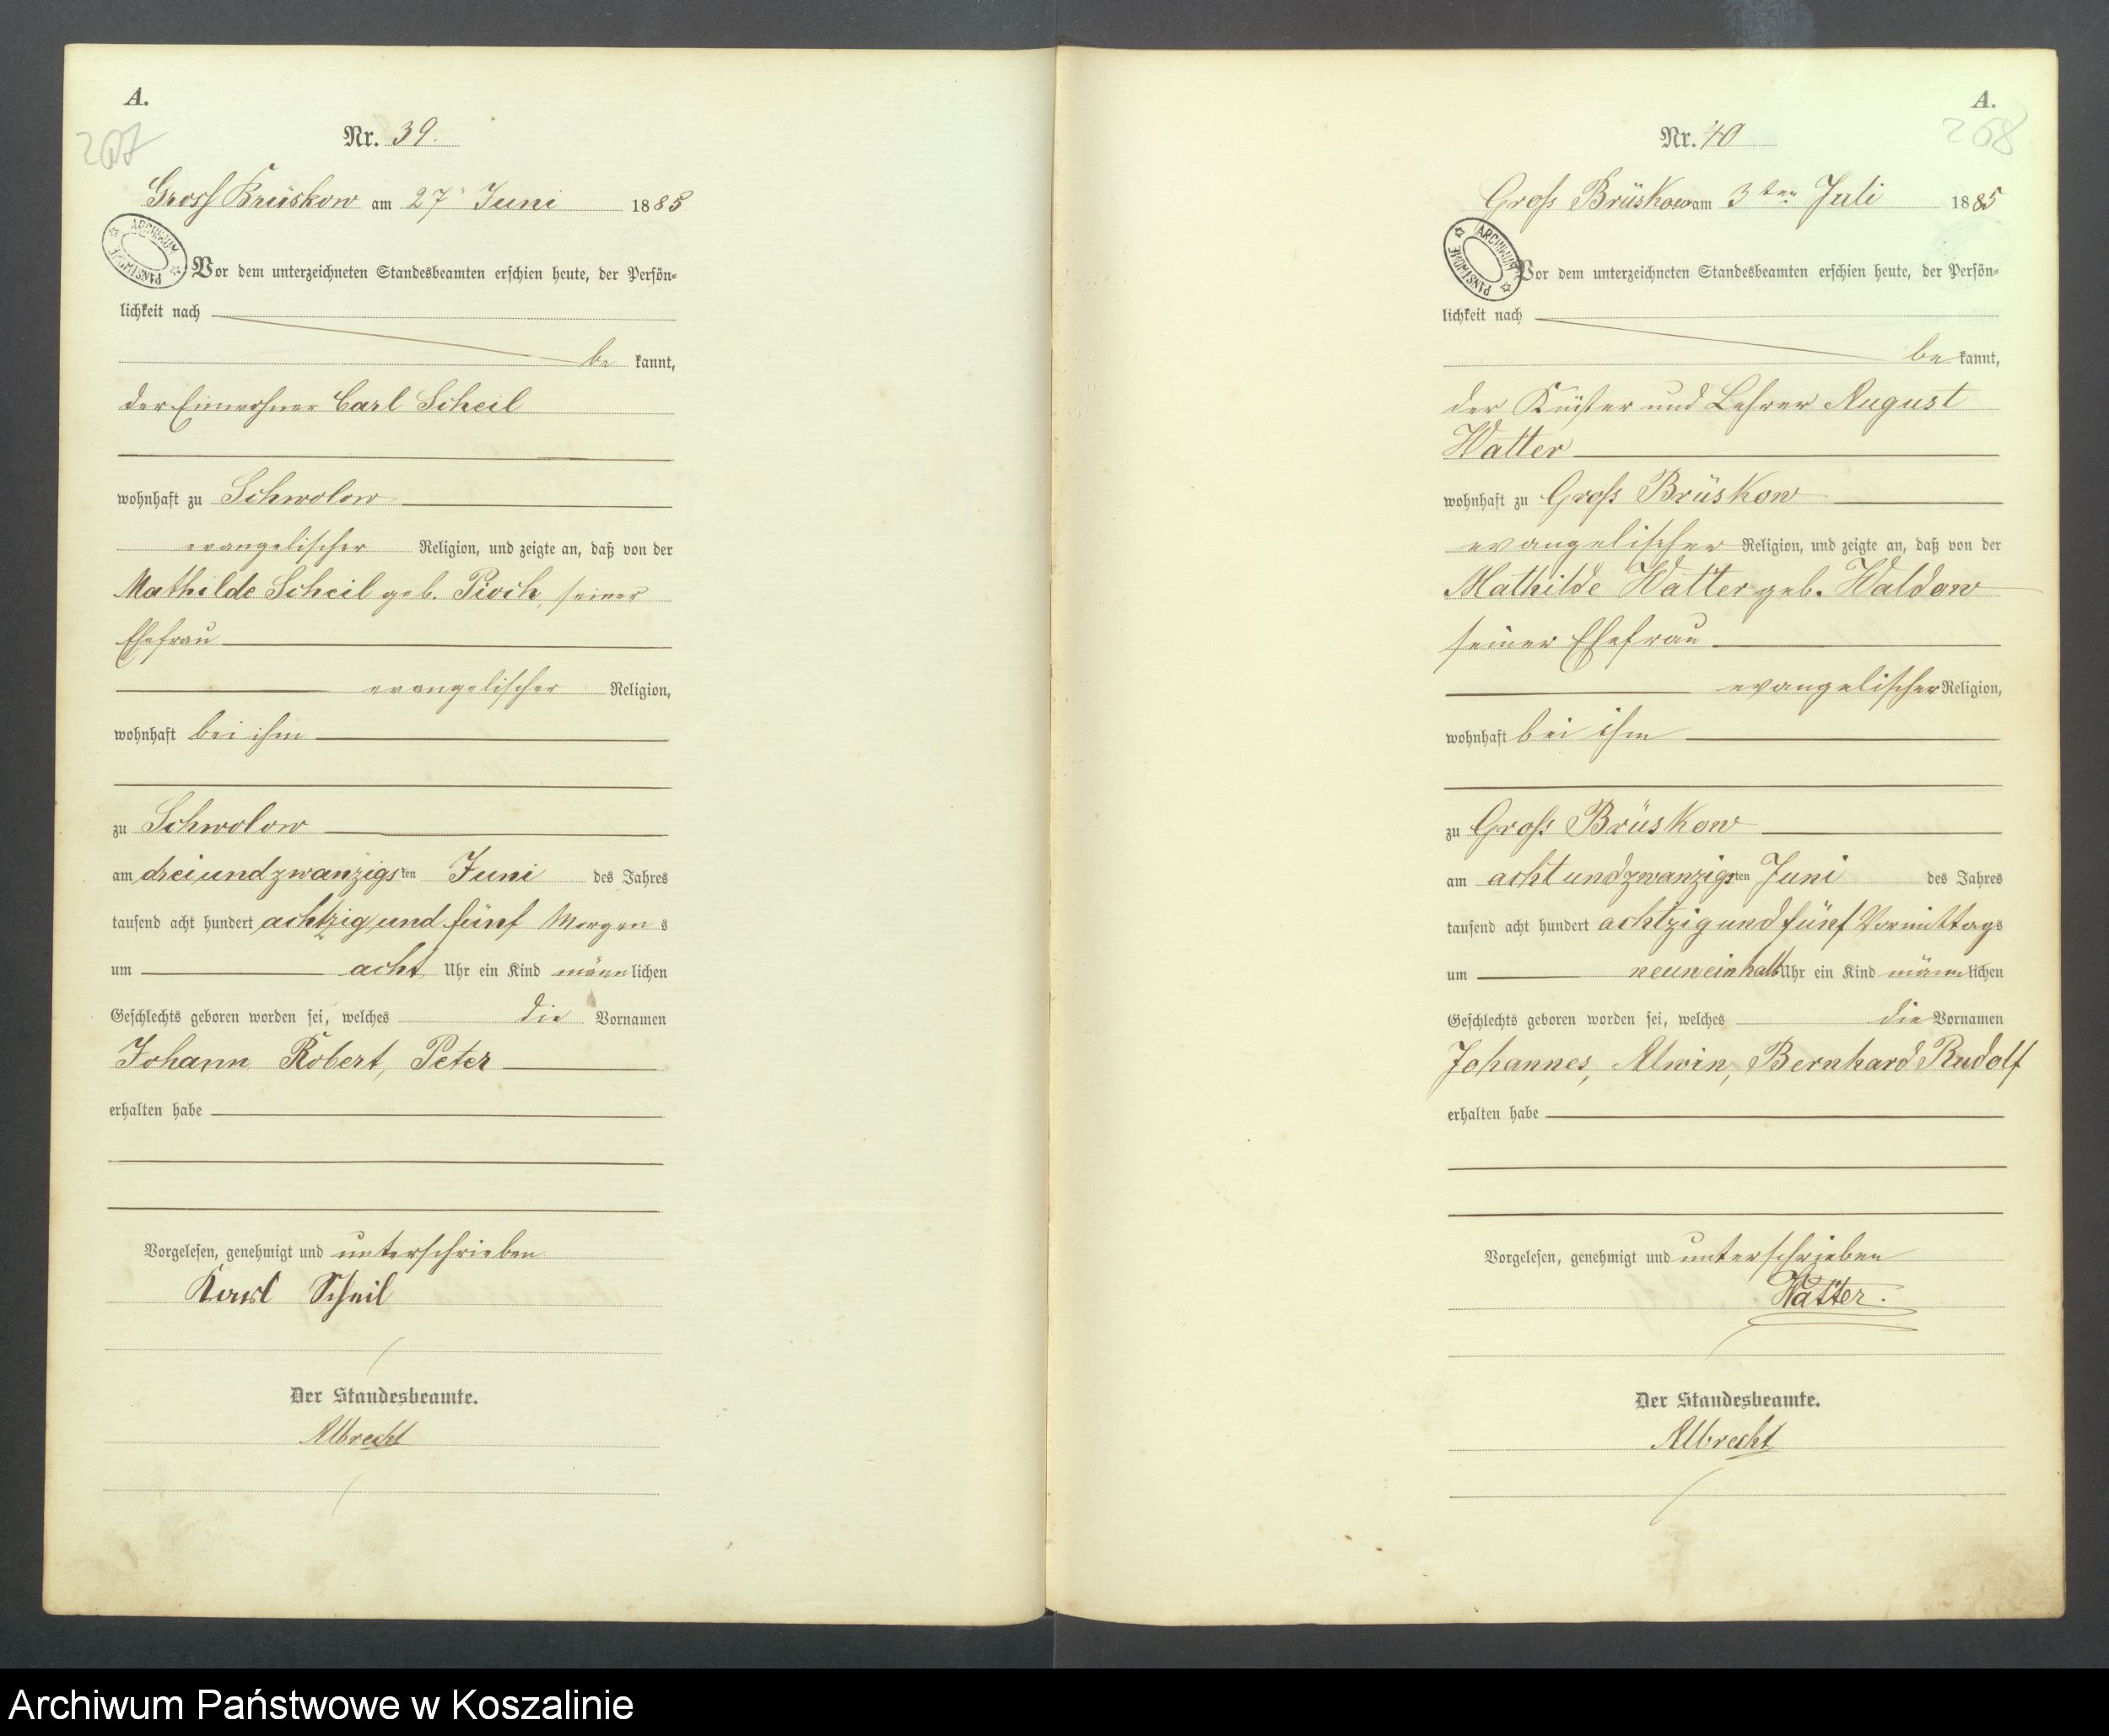 A.
207
Nr. 39.
Gross Brüskow am 27 Juni 1885
ARCHIWUM PAŃSTWOWE
Vor dem unterzeichneten Standesbeamten erschien heute, der Persön-
lichkeit nach
be kannt,
der Einwohner Carl Scheil
wohnhaft zu Schwolow
evangelischer Religion, und zeigte an, daß von der
Mathilde Scheil geb. Pioch, seiner
Ehefrau
evangelischer Religion,
wohnhaft bei ihm
zu Schwolow
am dreiundzwanzigsten Juni des Jahres
tausend acht hundert achtzig und fünf Morgens
um acht Uhr ein Kind männlichen
Geschlechts geboren worden sei, welches die Vornamen
Johann Robert, Peter
erhalten habe
Vorgelesen, genehmigt und unterschrieben
Karl Scheil
Der Standesbeamte.
Albrecht
A.
268
Nr. 40
Groß Brüskow am 3ten Juli 1885
ARCHIWUM PAŃSTWOWE
Vor dem unterzeichneten Standesbeamten erschien heute, der Persön-
lichkeit nach
be kannt,
der Küster und Lehrer August
Watter
wohnhaft zu Groß Brüskow
evangelischer Religion, und zeigte an, daß von der
Mathilde Watter geb. Waldow
seiner Ehefrau
evangelischer Religion,
wohnhaft bei ihm
zu Groß Brüskow
am acht undzwanzigsten Juni des Jahres
tausend acht hundert achtzig und fünf Vormittags
um neuneinhalb Uhr ein Kind männlichen
Geschlechts geboren worden sei, welches die Vornamen
Johannes, Alwin, Bernhard Rudolf
erhalten habe
Vorgelesen, genehmigt und unterschrieben
Watter.
Der Standesbeamte.
Albrecht
Archiwum Państwowe w Koszalinie